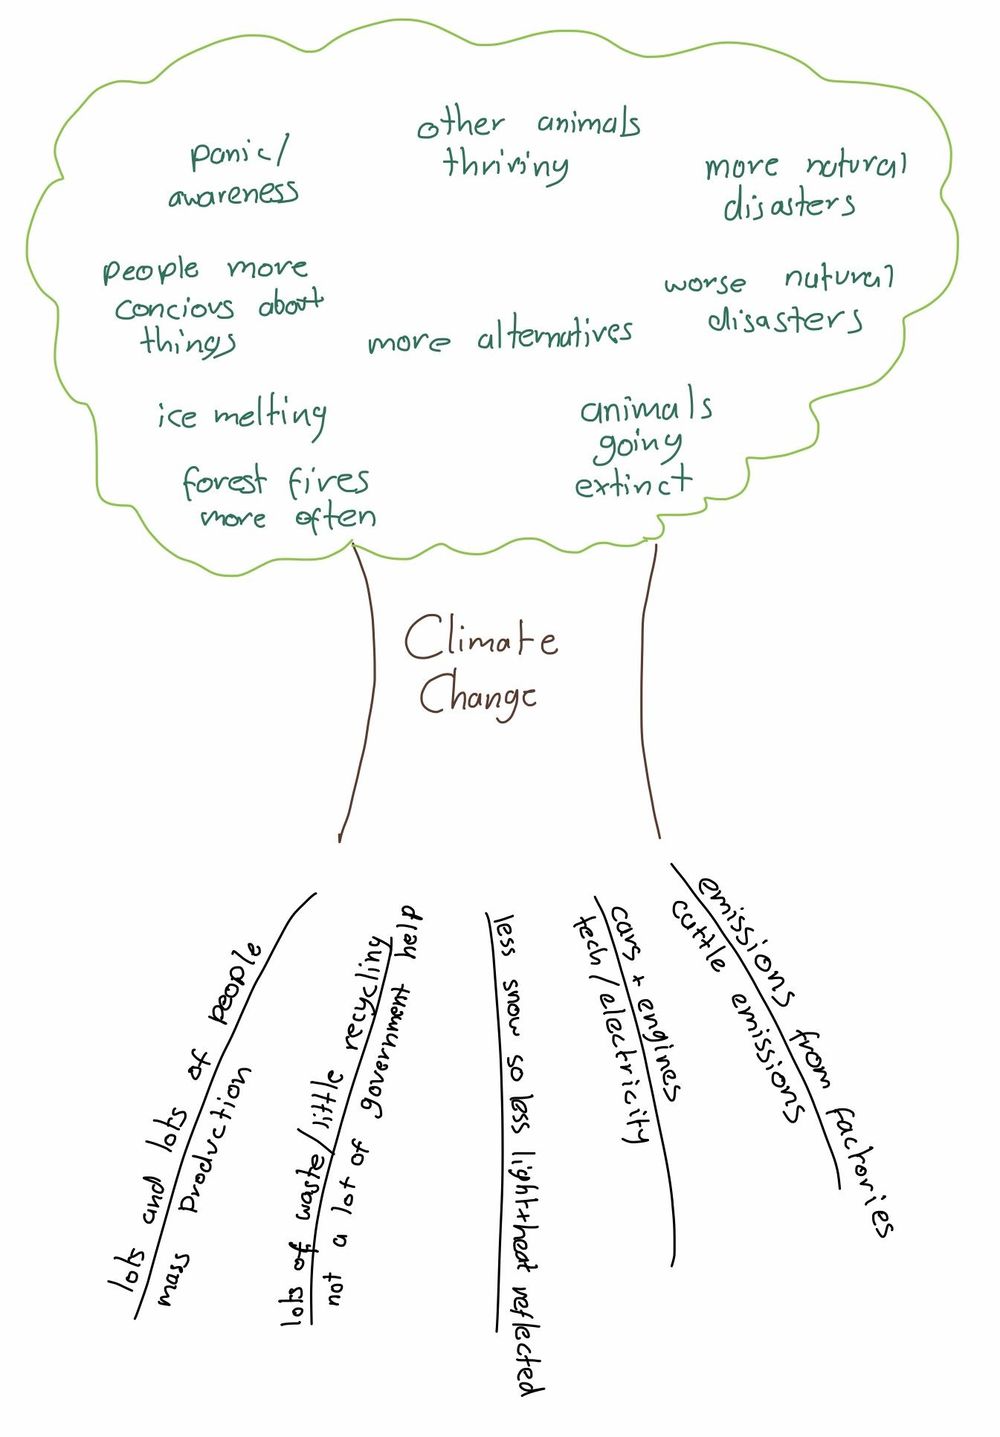 panic/
awareness
other animals
thriving
more natural
disasters
people more
concious about
things
more alternatives
worse natural
disasters
ice melting
animals
going
extinct
forest fires
more often
Climate
Change
lots and lots of people
mass production
lots of waste/little recycling
not a lot of government help
less snow so less light+heat reflected
cars + engines
tech/electricity
emissions from factories
cattle emissions